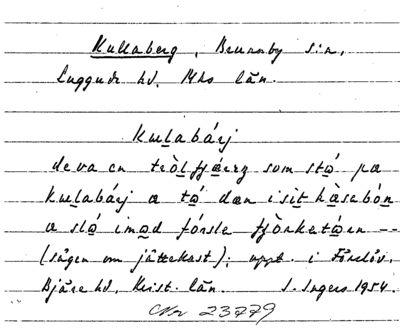 Kullaberg, Brunnby s:n,
Luggude hd, Mhs län.
Kuḷabárj
de va en tròḷfjæ̀rŋ som stǫ̀ pa
kuḷabárj a tǫ̀ dæn i sit hǫ̀sebǫ́n
a slǫ imǫd fòrsle fjòrketǫ́ren --
(sägen om jättekast); uppt. i Förslöv,
Bjäre hd, Krist. län. S. Ingers 1954.
23779